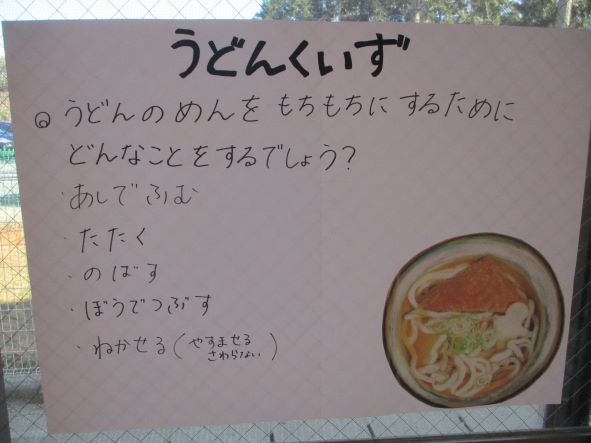 うどんくいず
Q うどんのめんを もちもちに するために
どんなことをするでしょう?
・あしでふむ
・たたく
・のばす
・ぼうでつぶす
・ねかせる(やすませる
さわらない)